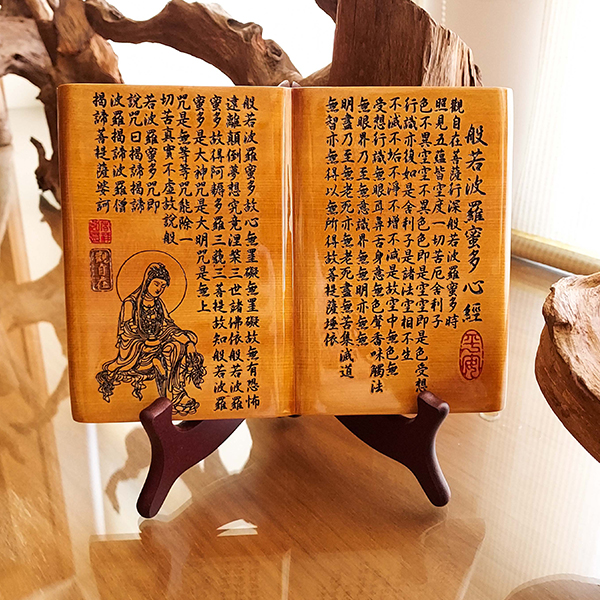 般若波羅蜜多心經
觀自在菩薩行深般若波羅蜜多時
照見五蘊皆空度一切苦厄舍利子
色不異空空不異色色即是空空即是色受想
行識亦復如是舍利子是諸法空相不生
不滅不垢不淨不增不減是故空中無色無
受想行識無眼耳鼻舌身意無色聲香味觸法
無眼界乃至無意識界無無明亦無無
明盡乃至無老死亦無老死盡無苦集滅道
無智亦無得以無所得故菩提薩埵依
平安
般若波羅蜜多故心無罣礙無罣礙故無有恐怖
遠離顛倒夢想究竟涅槃三世諸佛依般若波羅
蜜多故得阿耨多羅三藐三菩提故知般若波羅
蜜多是大神咒是大明咒是無上
咒是無等等咒能除一
切苦真實不虛故說般
若波羅蜜多咒即
說咒曰揭諦揭諦
波羅揭諦波羅僧
揭諦菩提薩婆訶
觀自在